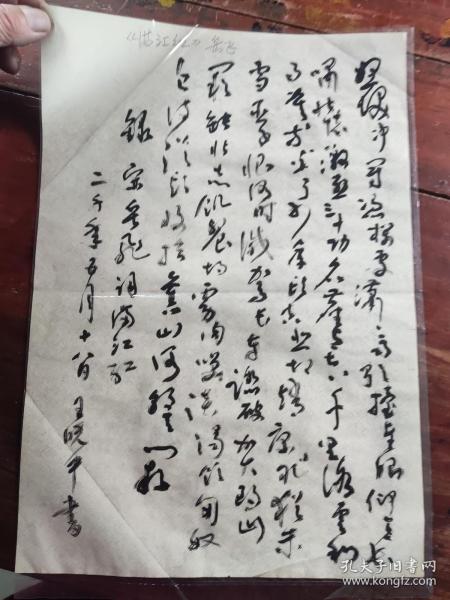 《满江红》岳飞
怒发冲冠凭栏处潇雨歇抬望眼仰天长
啸壮怀激烈三十功名尘与土八千里路云和
月莫等闲了少年头空悲切靖康耻犹未
雪臣子恨何时灭驾长车踏破贺兰山
缺壮志饥餐胡虏肉笑谈渴饮匈奴
血待从头收拾旧山河朝天阙
录宋岳飞词满江红
二千年五月十八日 王晓平书
孔夫子旧书网